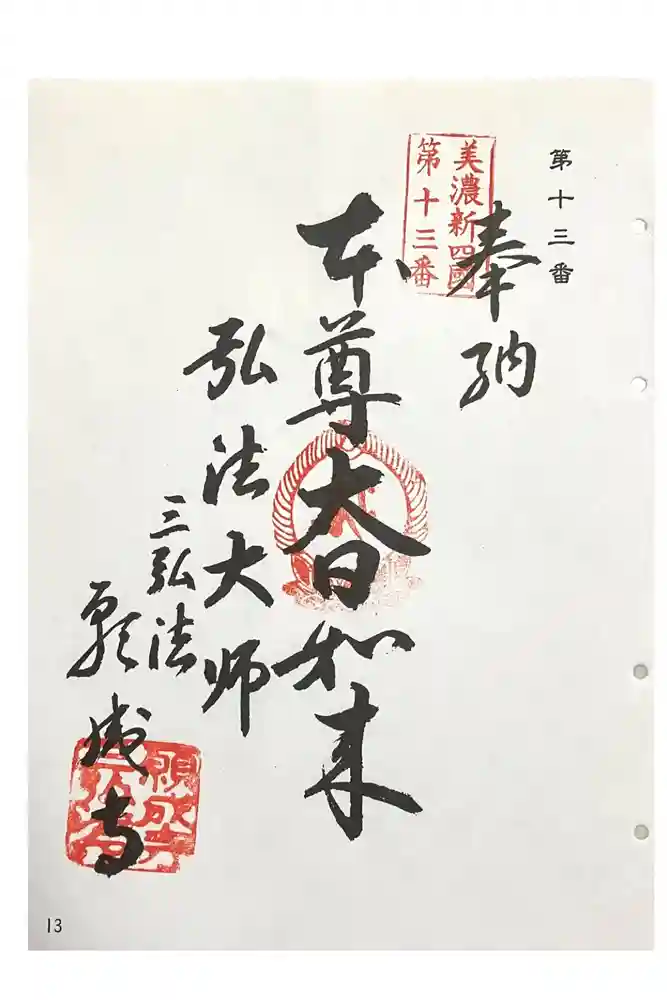 第十三番
美濃新四國
第十三番
奉納
本尊大日如来
弘法大师
三弘法
願成寺
願成寺
13